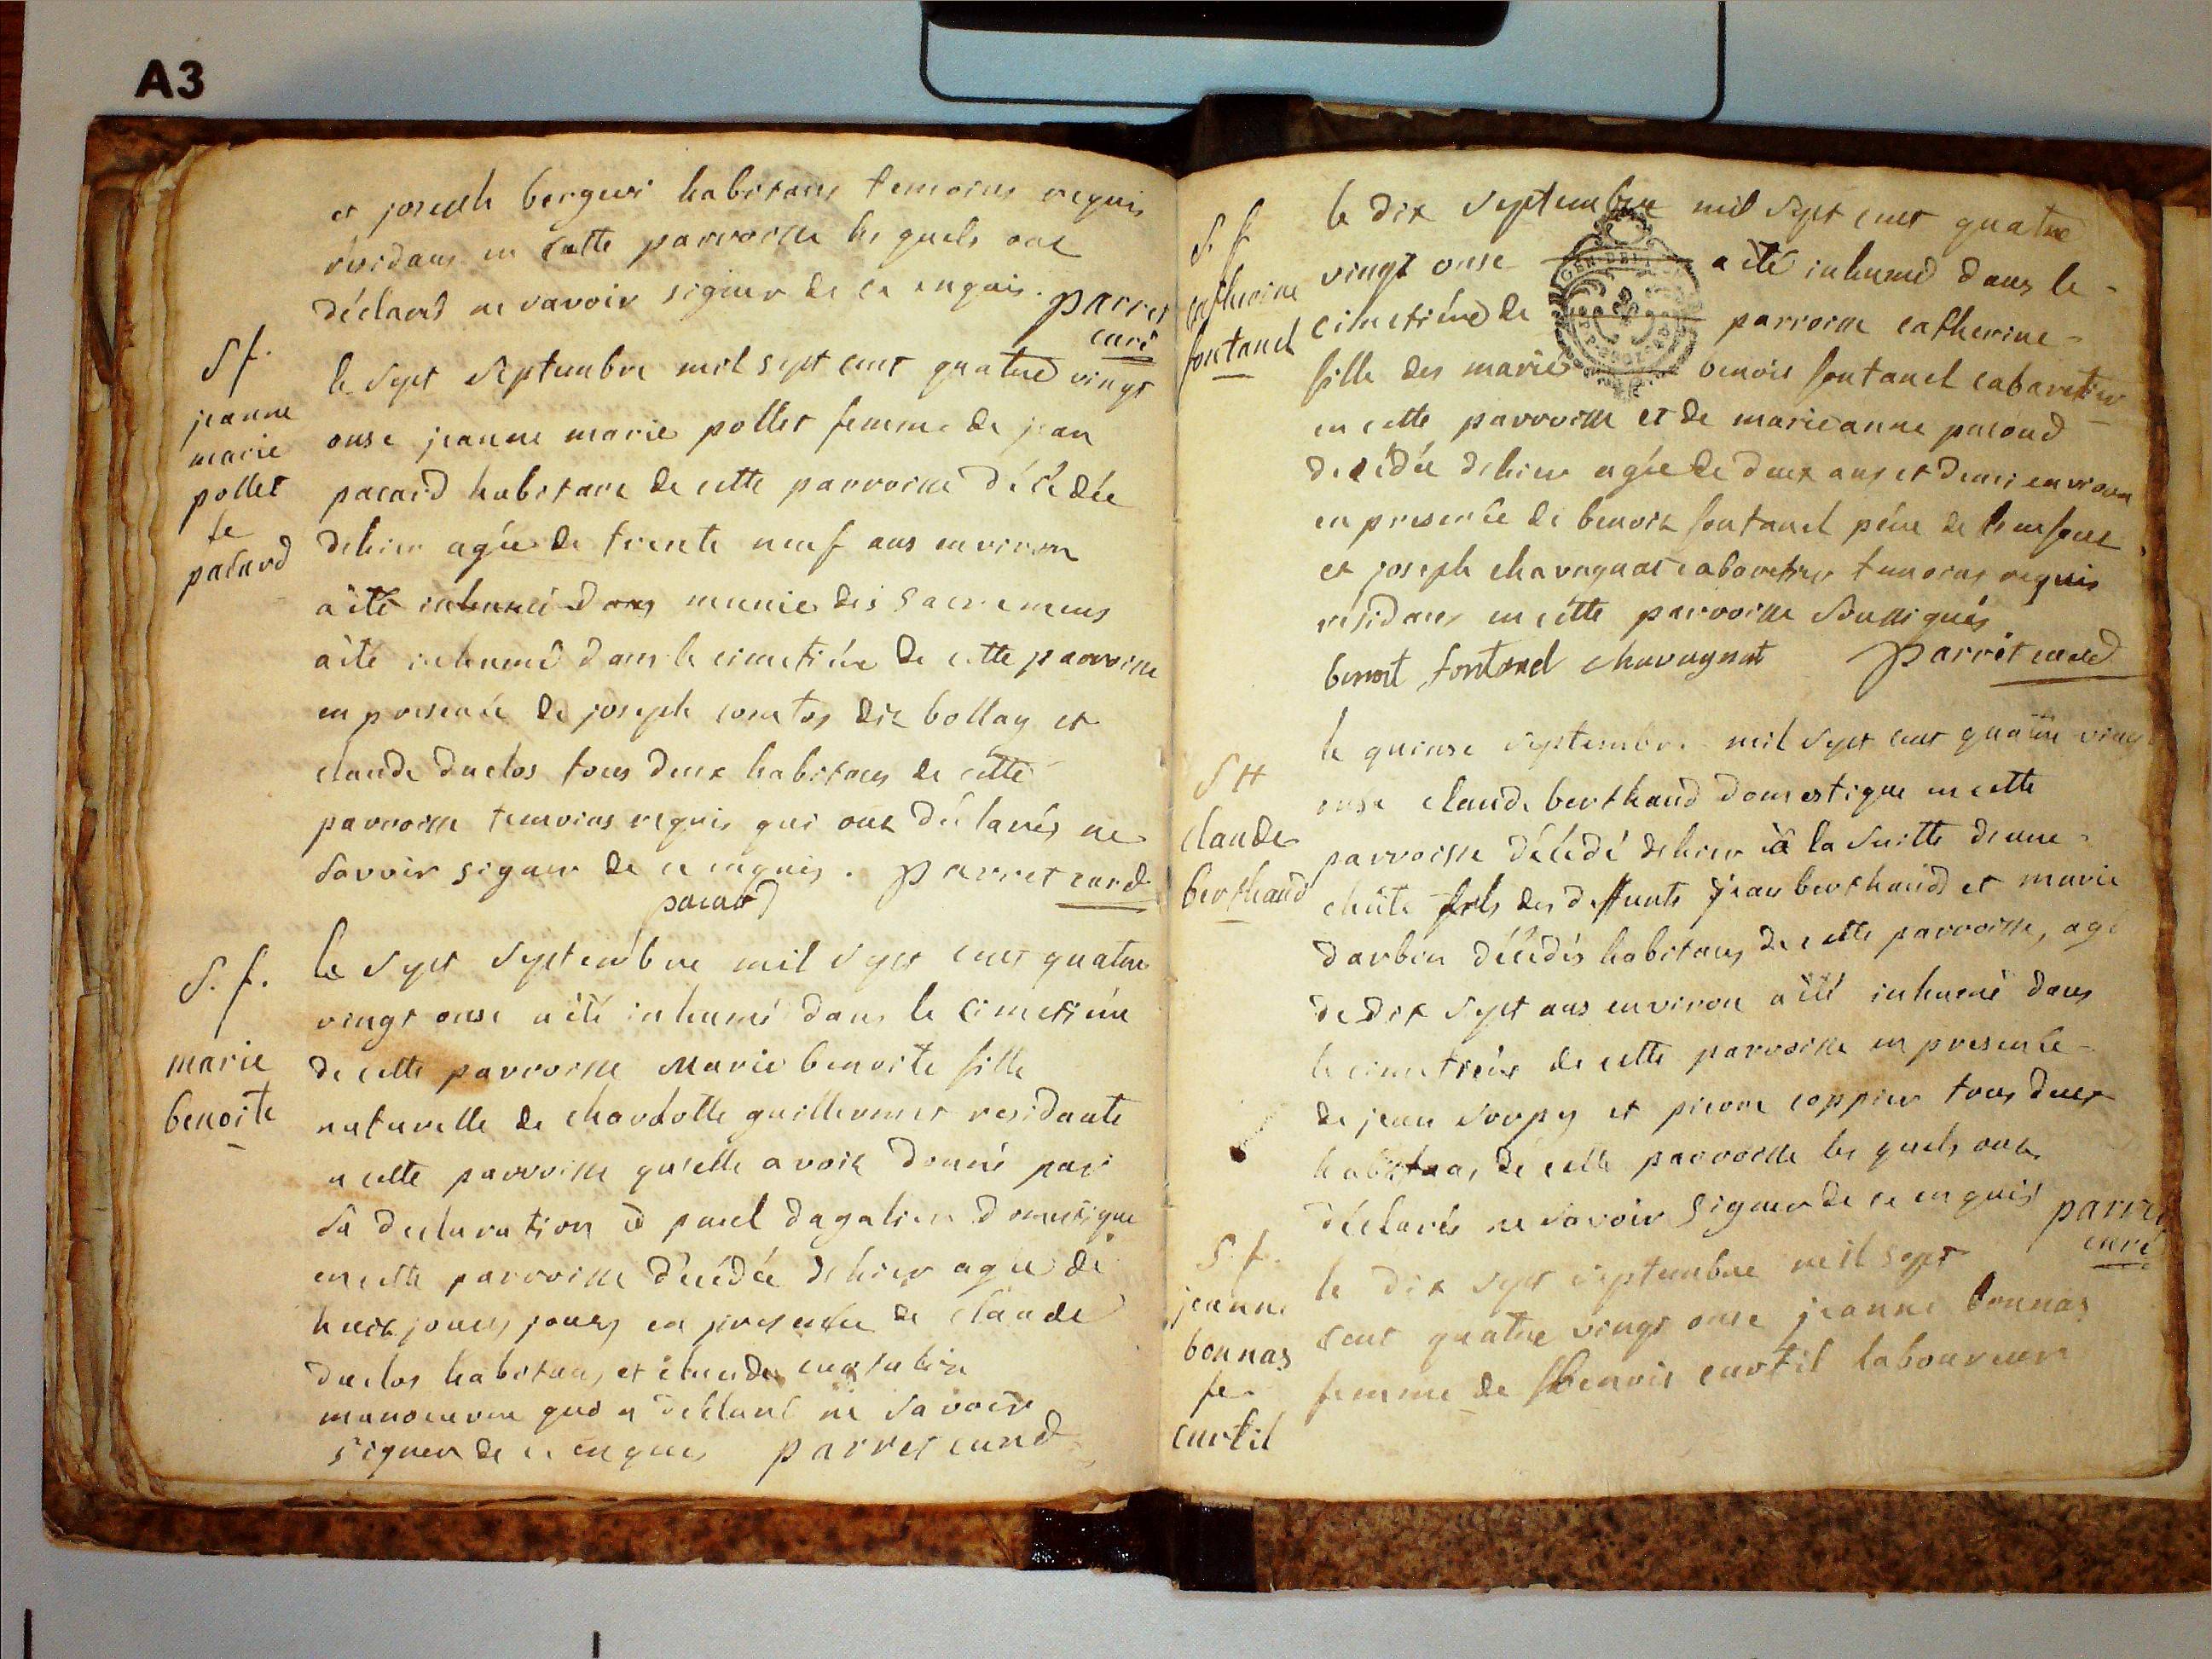 A3
et joseph berger habitans temoins requis
residans en cette parroisse lesquels ont
déclaré ne savoir signer de ce enquis. parret
curé
S f.
jeanne
marie
pollet
fe
pacard
le sept septembre mil sept cent quatre vingt
onse jeanne marie pollet femme de jean
pacard habitant de cette parroisse décédée
dehier agée de trente neuf ans environ
a été inhumé dans munie des sacremens
a été inhumé dans le cimetiére de cette parroisse
en presence de joseph comtos dit bollay et
claude duclos tous deux habitans de cette
parroisse temoins requis qui ont déclarés ne
savoir signer de ce enquis. parret curé
pacard
S. f.
marie
benoite
le sept septembre mil sept cent quatre
vingt onse a été inhumé dans le cimetiére
de cette parroisse Marie benoite fille
naturelle de charlotte guillermet residante
a cette parroisse qu'elle avoit donné par
sa declaration à paul dagalier domestique
en cette parroisse décédée dehier agée de
huit jours jours en presence de claude
duclos habitans et claude
manoeuvre qui a déclaré ne savoir
signer de ce enquis parret curé
S. f
catherine
fontanel
le dix septembre mil sept cent quatre
vingt onse a été inhumé dans le
cimetiére de parroisse catherine
fille des mariés benoit fontanel cabaretier
en cette parroisse et de marieanne pacoud
decédée dehier agée de deux ans et demi environ
en presence de benoit fontanel pére de l'enfant
et joseph chavagnat cabaretier temoins requis
residans en cette parroisse soussignés
benoit fontanel chavagnat parret curé
S H
claude
berthaud
le quinse septembre mil sept cent quatre vingt
onse claude berthaud domestique en cette
parroisse décédé dehier à la suitte d'une
chûte fils des deffunts jean berthaud et marie
darbon décédés habitans de cette parroisse, agé
de dix sept ans environ a été inhumé dans
le cimetiére de cette parroisse en presence
de jean sorpy et pierre coppier tous deux
habitans de cette parroisse lesquels ont
déclarés ne savoir signer de ce enquis parret
curé
S. f.
jeanne
bonnas
fe
curtil
le dix sept septembre mil sept
cent quatre vingt onse jeanne bonnas
femme de benoit curtil laboureur